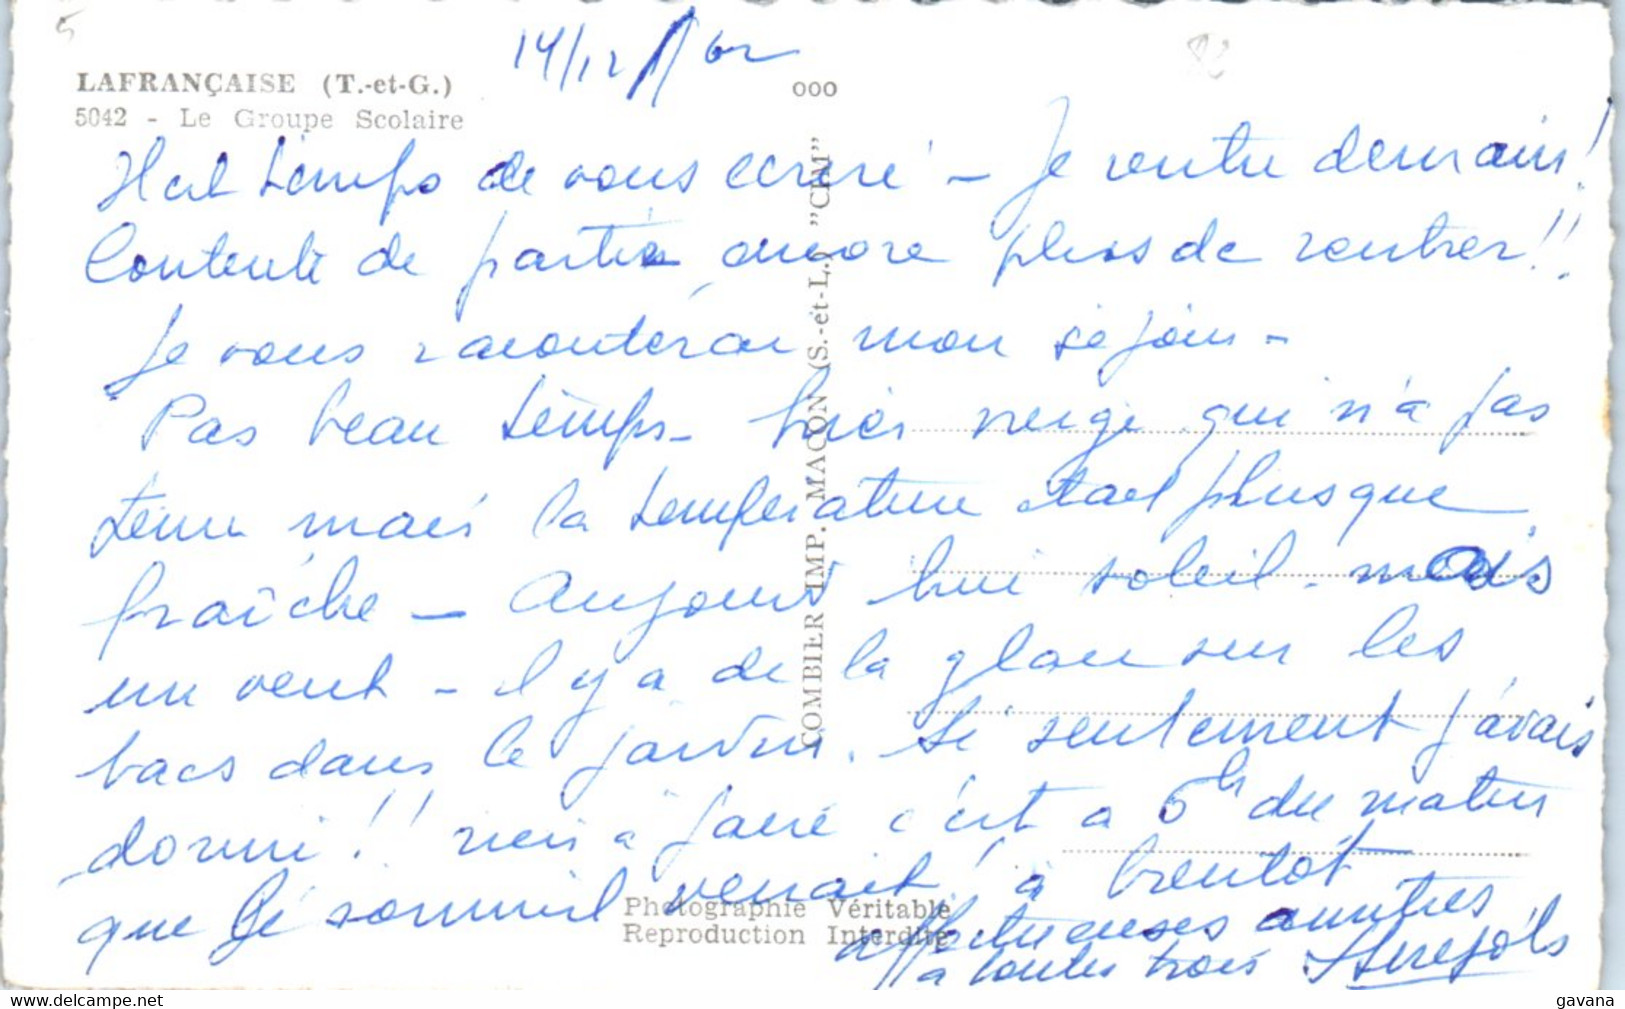 14/12/62
LAFRANÇAISE (T.-et-G.)
5042 - Le Groupe Scolaire
000
COMBIER IMP. MACON (S.-et-L.) "CIM"
de vous ecrire - Je rentre demain!
Contente de partir encore plus de rentrer!!
Je vous raconterai mon séjour -
Pas beau temps - hier neige qui n'a pas
tenu mais la température était plusque
fraîche - Aujourd hui soleil - mais
un vent - il y a de la glace sur les
bacs dans le jardin. Si seulement j'avais
dormi!! rien à faire c'est a 5h du matin
que le sommeil venait! à bientôt
affectueuses amitiés
a toutes trois
Photographie Véritable
Reproduction Interdite
gavana